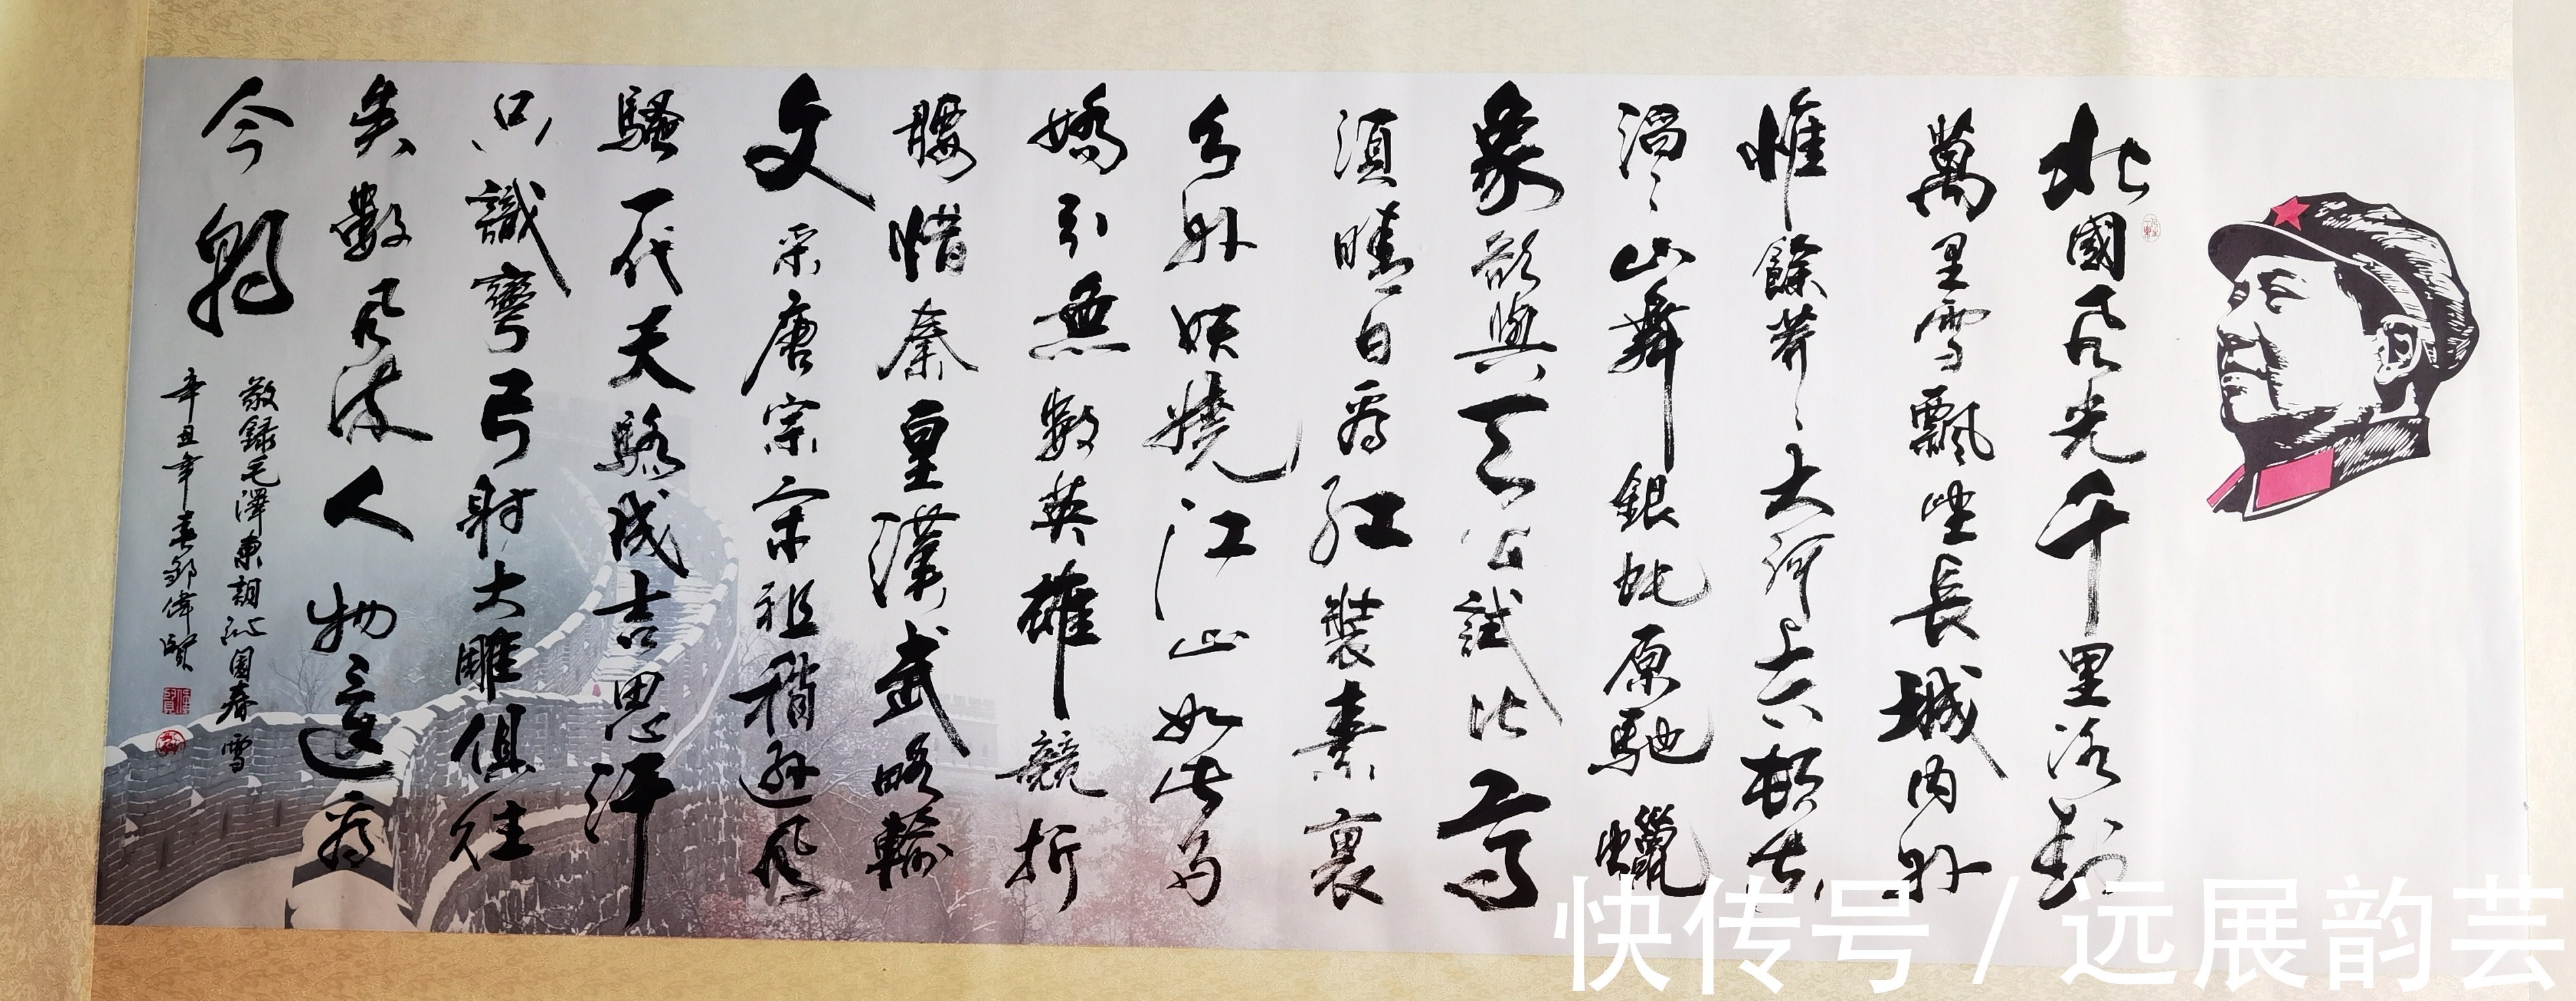 北國風光千里冰封
萬里雪飄望長城内外
惟餘莽々大河上下頓失
滔々山舞銀蛇原馳蠟
象欲與天公試比高
須晴日看紅裝素裹
分外妖嬈江山如此多
嬌引無數英雄競折
腰惜秦皇漢武略輸
文采唐宗宋祖稍遜風
騷一代天驕成吉思汗
只識彎弓射大雕俱往
矣數風流人物還看
今朝
敬録毛澤東詞沁园春 雪
辛丑年春偉賢
快传号 / 远展韵芸